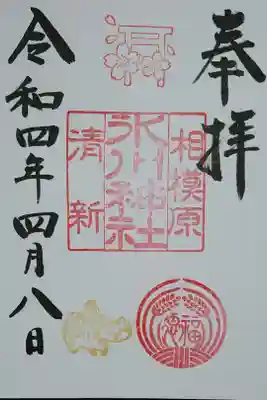 奉拝
相模原
氷川神社
清新
福徳
令和四年四月八日